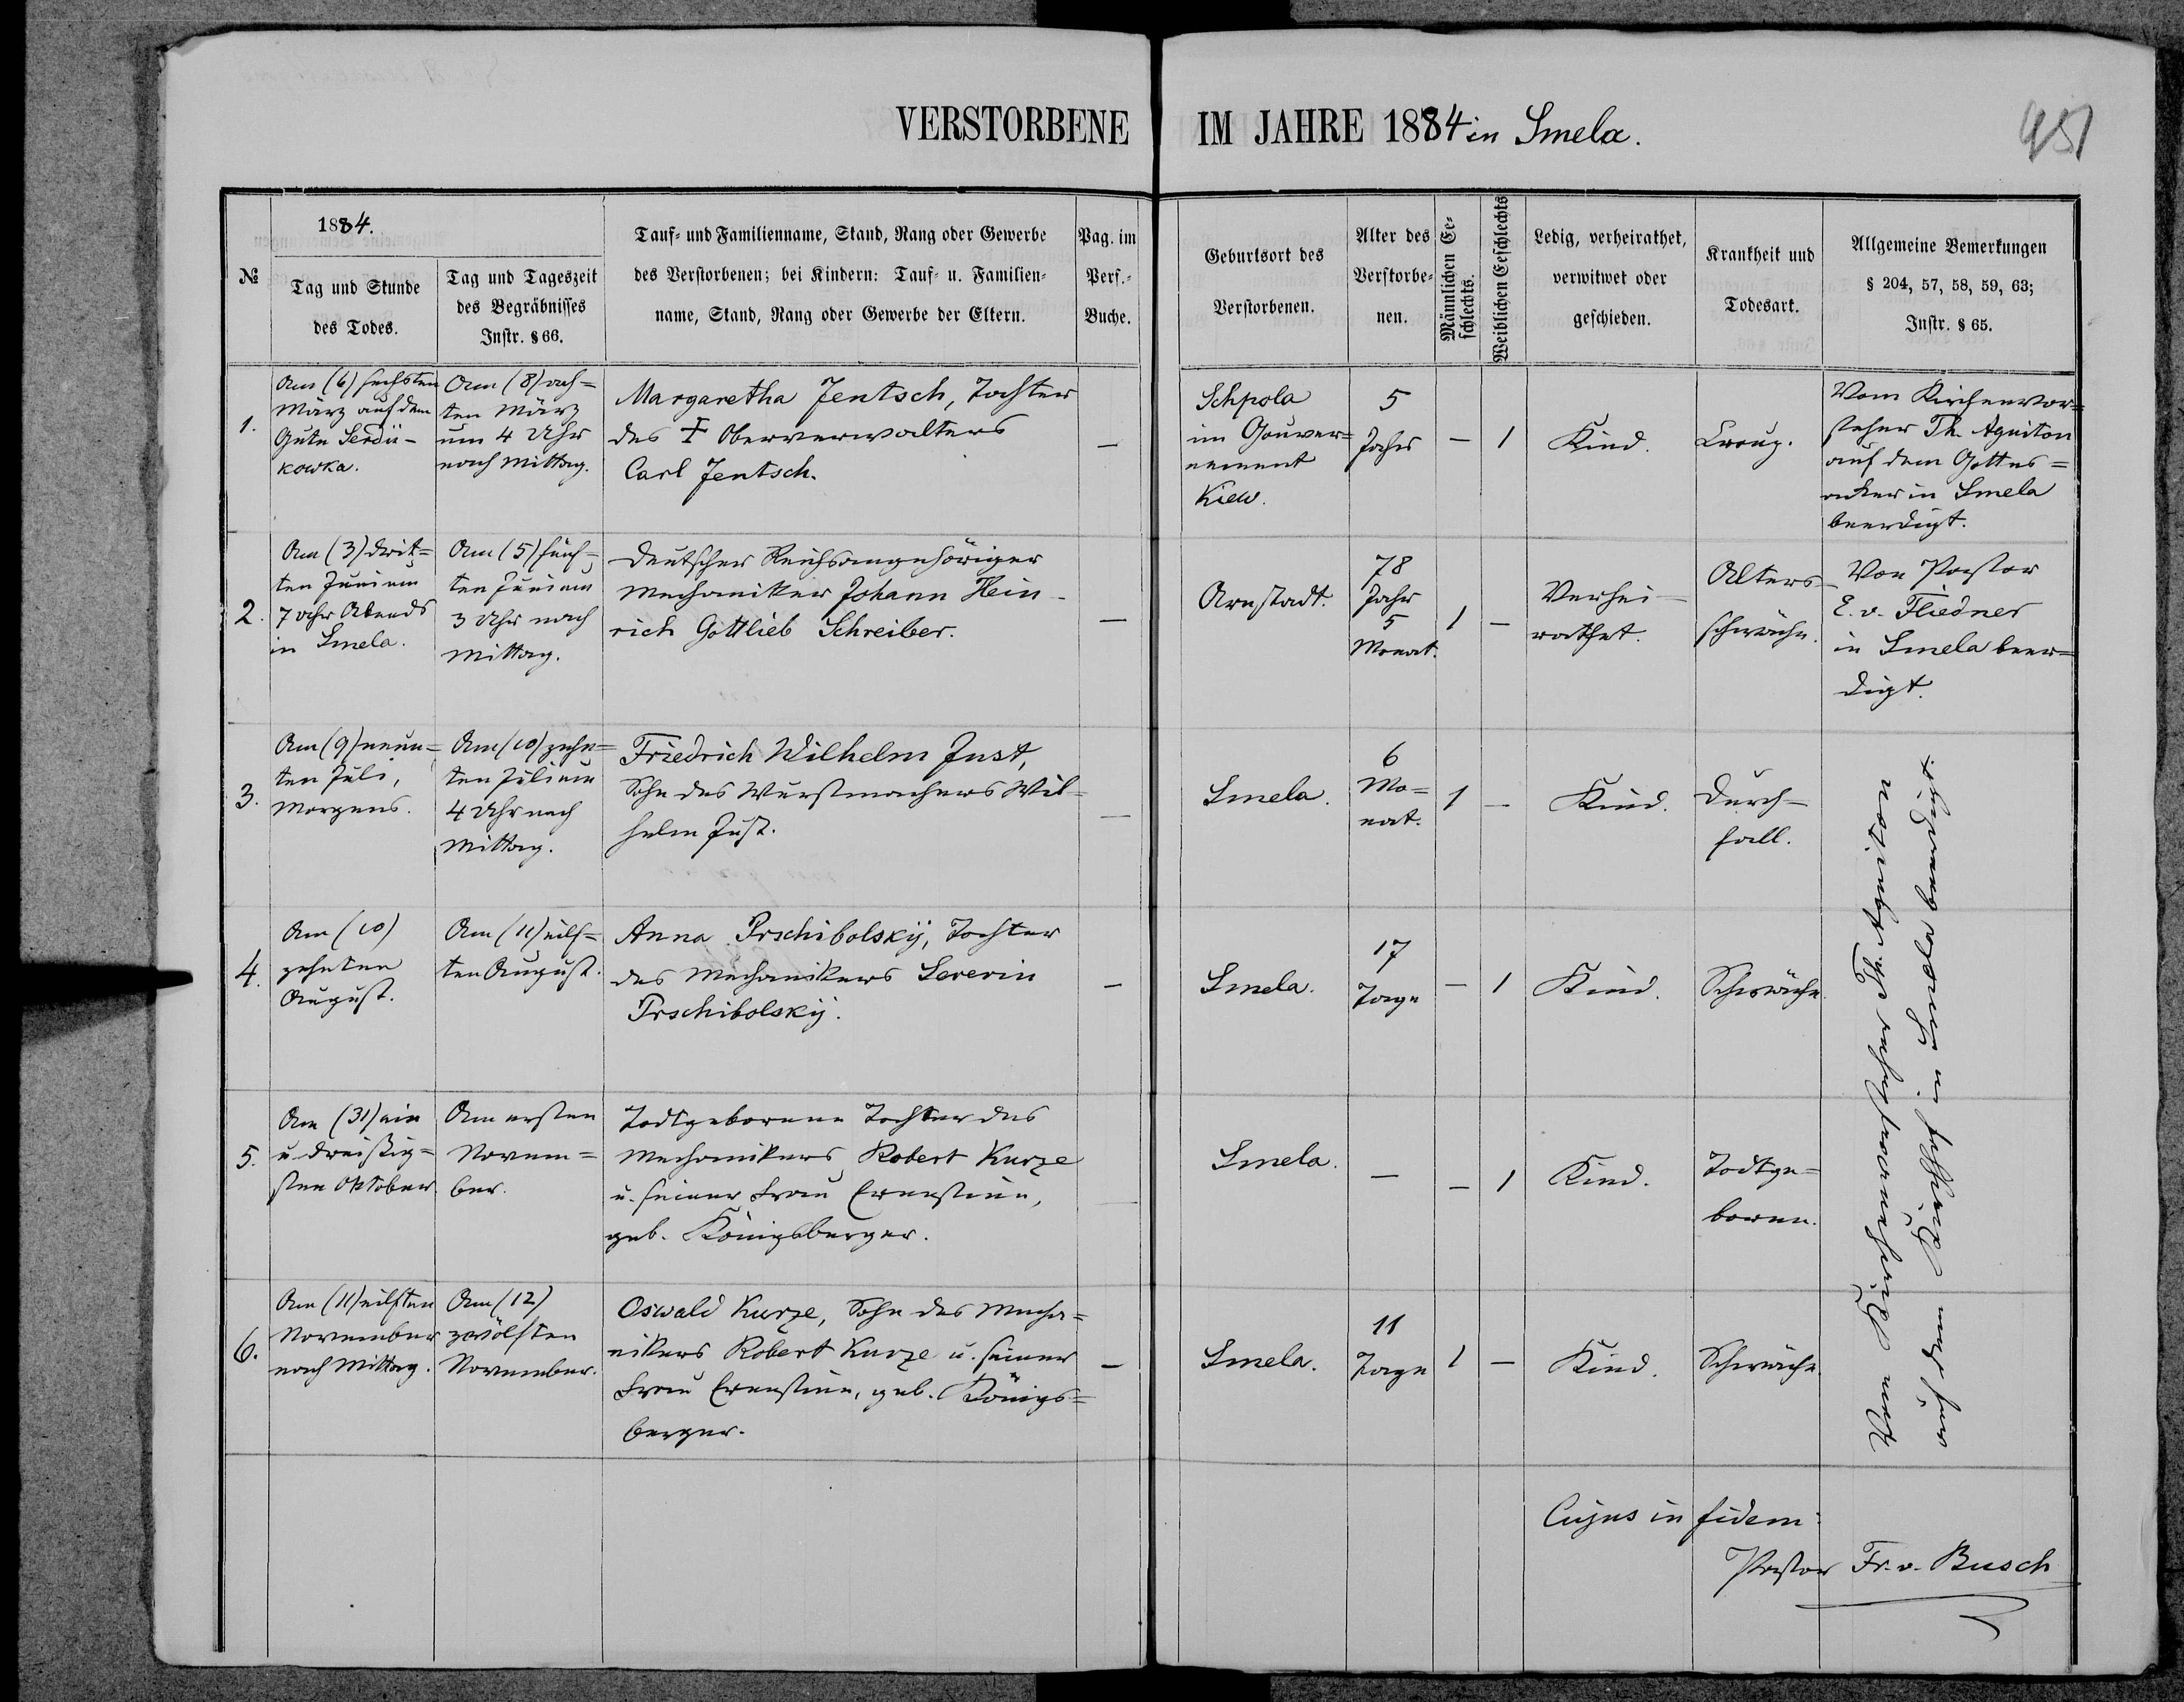 VERSTORBENE IM JAHRE 1884 in Smela.
951
1884.
№
Tag und Stunde
des Todes.
Tag und Tageszeit
des Begräbnisses
Instr. § 66.
Tauf- und Familienname, Stand, Rang oder Gewerbe
des Verstorbenen; bei Kindern: Tauf- u. Familien-
name, Stand, Rang oder Gewerbe der Eltern.
Pag. im
Pers.-
Buche.
Geburtsort des
Verstorbenen.
Alter des
Verstorbe-
nen.
Männlichen Ge-
schlechts.
Weiblichen Geschlechts
Ledig, verheirathet,
verwitwet oder
geschieden.
Krankheit und
Todesart.
Allgemeine Bemerkungen
§ 204, 57, 58, 59, 63;
Instr. § 65.
1.
Am (6) sechsten
März auf dem
Gute Serdü-
kowka.
Am (8) ach=
ten März
um 4 Uhr
nach Mittag.
Margaretha Jentsch, Tochter
des ‡ Oberverwalters
Carl Jentsch.
—
Schpola
im Gouver=
nement
Kiew.
5
Jahr
—
1
Kind.
Croup.
Vom Kirchenvor=
steher Th. Aguiton
auf dem Gottes=
acker in Smela
beerdigt.
2.
Am (3) drit=
ten Juni um
7 Uhr Abends
in Smela.
Am (5) fünf-
ten Juni um
3 Uhr nach
Mittag.
Deutscher Reichsangehöriger
Mechaniker Johann Hein-
rich Gottlieb Schreiber.
—
Arnstadt.
78
Jahr
5
Monat.
1
—
Verhei=
rathet.
Alters-
schwäche.
Von Pastor
E. v. Fliedner
in Smela beer=
digt.
3.
Am (9) neun=
ten Juli,
Morgens.
Am (10) zehn=
ten Juli um
4 Uhr nach
Mittag.
Friedrich Wilhelm Just,
Sohn des Wurstmachers Wil=
helm Just.
—
Smela.
6
Mo=
nat.
1
—
Kind.
Durch-
fall.
Vom Kirchenvorsteher Th. Aguiton
auf dem Kirchhof in Smela beerdigt.
4.
Am (10)
zehnten
August.
Am (11) eilf=
ten August.
Anna Prschibolskij, Tochter
des Mechanikers Severin
Prschibolskij.
—
Smela.
17
Tage
—
1
Kind.
Schwäche.
5.
Am (31) ein
u. dreißig=
sten Oktober.
Am ersten
Novem=
ber.
Todtgeborene Tochter des
Mechanikers Robert Kurze
u. seiner Frau Ernestine,
geb. Königsberger.
—
Smela.
—
—
1
Kind.
Todtge=
boren.
6.
Am (11) eilften
November
nach Mittag.
Am (12)
zwölften
November.
Oswald Kurze, Sohn des Mecha=
nikers Robert Kurze u. seiner
Frau Ernestine, geb. Königs=
berger.
—
Smela.
11
Tage
1
—
Kind.
Schwäche.
Cujus in fidem:
Pastor Fr. v. Busch